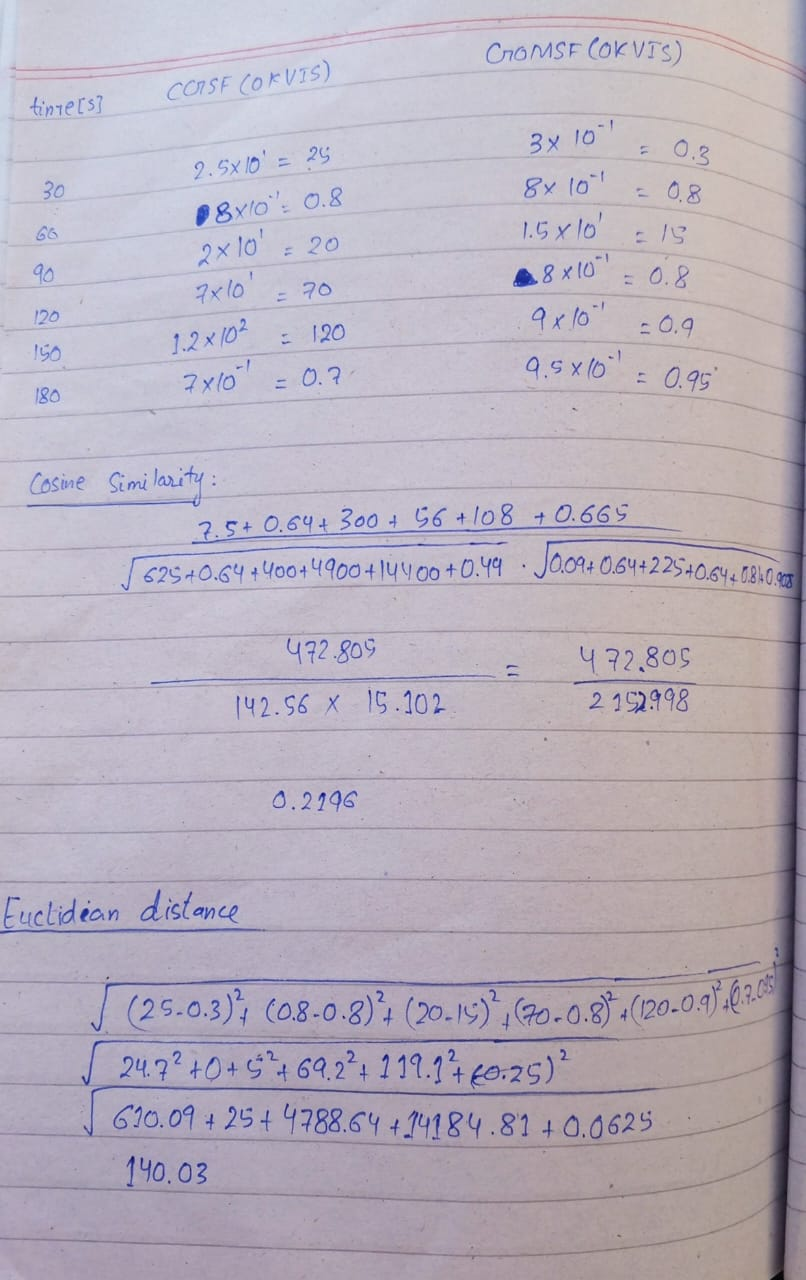 time[s] CGSF (OKVIS) GOMSF (OKVIS)
30 2.5×10¹ = 25 3×10⁻¹ = 0.3
60 8×10⁻¹ = 0.8 8×10⁻¹ = 0.8
90 2×10¹ = 20 1.5×10¹ = 15
120 7×10¹ = 70 8×10⁻¹ = 0.8
150 1.2×10² = 120 9×10⁻¹ = 0.9
180 7×10⁻¹ = 0.7 9.5×10⁻¹ = 0.95
Cosine Similarity:
7.5+ 0.64+ 300+ 56 +108 + 0.665
√625+0.64+400+4900+14400+0.49 . √0.09+0.64+225+0.64+0.81+0.9025
472.805 = 472.805
142.56 × 15.102 2152.998
0.2196
Euclidian distance
√(25-0.3)²+ (0.8-0.8)²+ (20-15)²+(70-0.8)²+(120-0.9)²+(0.7-0.95)²
√24.7²+0+5²+69.2²+119.1²+(-0.25)²
√610.09+25+4788.64+14184.81+0.0625
140.03